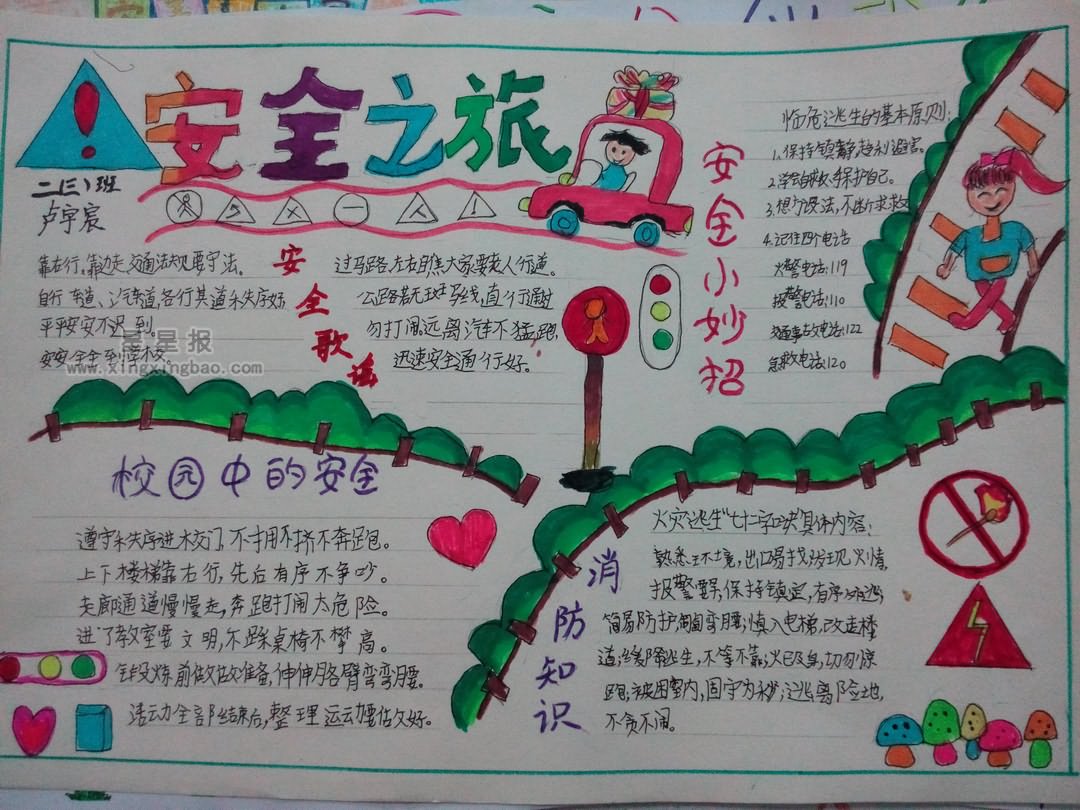 安全之旅
二(三)班
卢宇宸
安全歌谣
靠右行,靠边走,交通法规要守法。
自行车道、汽车道,各行其道永失序好
平平安安不迟到
安安全全到学校
过马路,左右看,大家要走人行道。
公路若无斑马线,直行通过
勿打闹远离汽车不猛跑,
迅速安全通行好。
星星报
www.xingxingbao.com
安全小妙招
临危逃生的基本原则:
1.保持镇静,趋利避害。
2.学会自救,保护自己。
3.想方设法,不断求救
4.记住四个电话
火警电话:119
报警电话:110
交通事故电话:122
急救电话:120
校园中的安全
遵守秩序进校门,不拥不挤不奔跑。
上下楼梯靠右行,先后有序不争吵。
走廊通道慢慢走,奔跑打闹太危险。
进了教室要文明,不踩桌椅不攀高。
锻炼前做做准备,伸伸胳臂弯弯腰。
活动全部结束后,整理运动要估久好。
消防知识
火灾逃生"七十二字口诀"具体内容:
熟悉环境,出口易找;发现火情,
报警要早;保持镇定,有序外逃;
简易防护,匍匐弯腰;慎入电梯,改走楼
道;缓降逃生,不等不靠;火已及身,切勿惊
跑;被困室内,固守为妙;逃离险地,
不贪不闹。